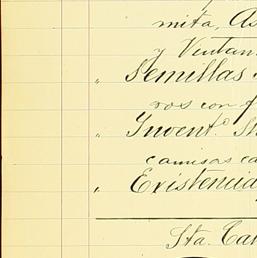 mita, As
y Ventan
" Semillas
ros con f
" Invent.º
camisas ca
" Existencia
Sta. Ca